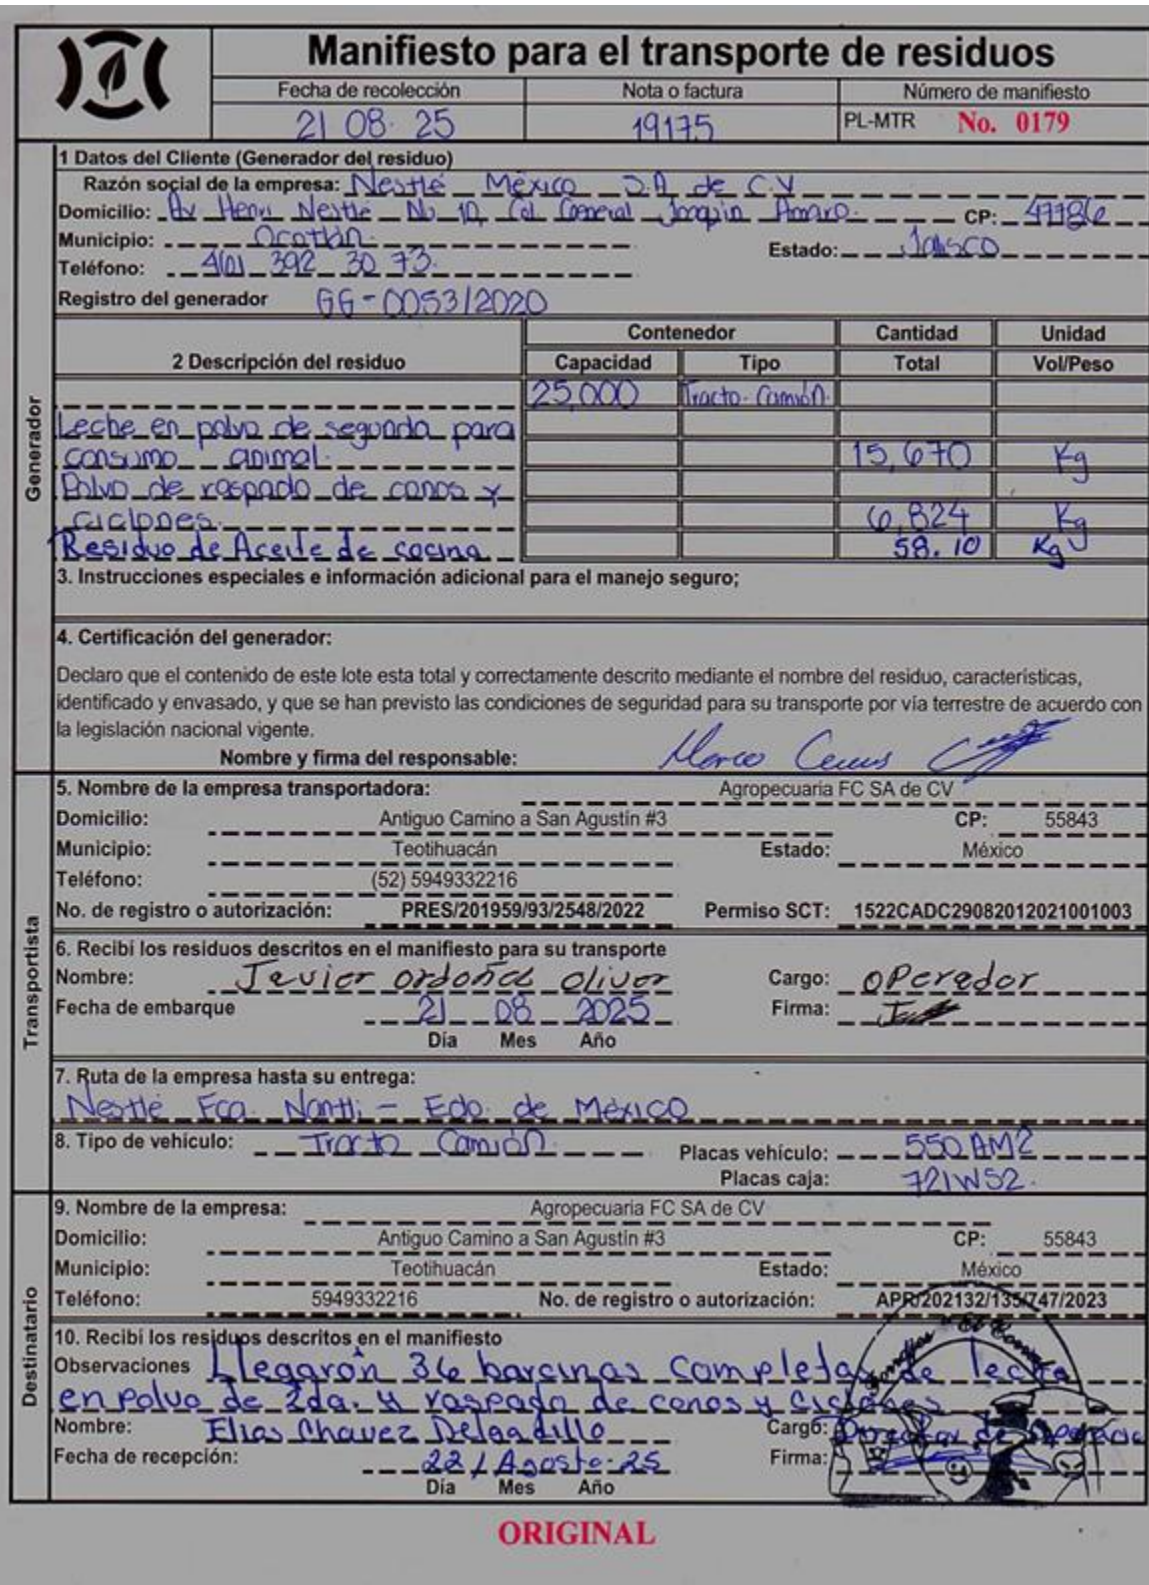 Manifiesto para el transporte de residuos
Fecha de recolección Nota o factura Número de manifiesto
21 08 25 19175 PL-MTR No. 0179
Generador
1 Datos del Cliente (Generador del residuo)
Razón social de la empresa: Nestlé México S.A de C.V
Domicilio: Av Henri Nestlé No 10, Col General Joaquin Amaro. CP: 47786
Municipio: Ocotlán.
Estado: Jalisco
Teléfono: 392 30 73.
Registro del generador GG-0053/2020
2 Descripción del residuo Contenedor Cantidad Unidad
Capacidad Tipo Total Vol/Peso
25,000 Tracto-Camión.
Leche en polvo de segunda para
consumo animal. 15,670 Kg
Polvo de raspado de conos y
ciclones. 6,824 Kg
Residuo de Aceite de cocina 58.10 Kg
3. Instrucciones especiales e información adicional para el manejo seguro;
4. Certificación del generador:
Declaro que el contenido de este lote esta total y correctamente descrito mediante el nombre del residuo, características,
identificado y envasado, y que se han previsto las condiciones de seguridad para su transporte por vía terrestre de acuerdo con
la legislación nacional vigente.
Nombre y firma del responsable: Marco
Transportista
5. Nombre de la empresa transportadora: Agropecuaria FC SA de CV
Domicilio: Antiguo Camino a San Agustín #3 CP: 55843
Municipio: Teotihuacán Estado: México
Teléfono: (52) 5949332216
No. de registro o autorización: PRES/201959/93/2548/2022 Permiso SCT: 1522CADC29082012021001003
6. Recibí los residuos descritos en el manifiesto para su transporte
Nombre: Javier ordoñez oliver Cargo: operador
Fecha de embarque 21 08 2025 Firma:
Día Mes Año
7. Ruta de la empresa hasta su entrega:
Nestlé Fca. Nantli - Edo. de México
8. Tipo de vehículo: Tracto Camión. Placas vehículo: 550AM2
Placas caja: 721WS2.
Destinatario
9. Nombre de la empresa: Agropecuaria FC SA de CV
Domicilio: Antiguo Camino a San Agustín #3 CP: 55843
Municipio: Teotihuacán Estado: México
Teléfono: 5949332216 No. de registro o autorización: APR/202132/135/747/2023
10. Recibí los residuos descritos en el manifiesto
Observaciones Llegarón 36 barcinas completas de leche
en polvo de 2da. y raspado de conos y ciclones
Nombre: Elias Chavez Delgadillo Cargo: Director de
Fecha de recepción: 22 / Agosto-25 Firma:
Día Mes Año
ORIGINAL